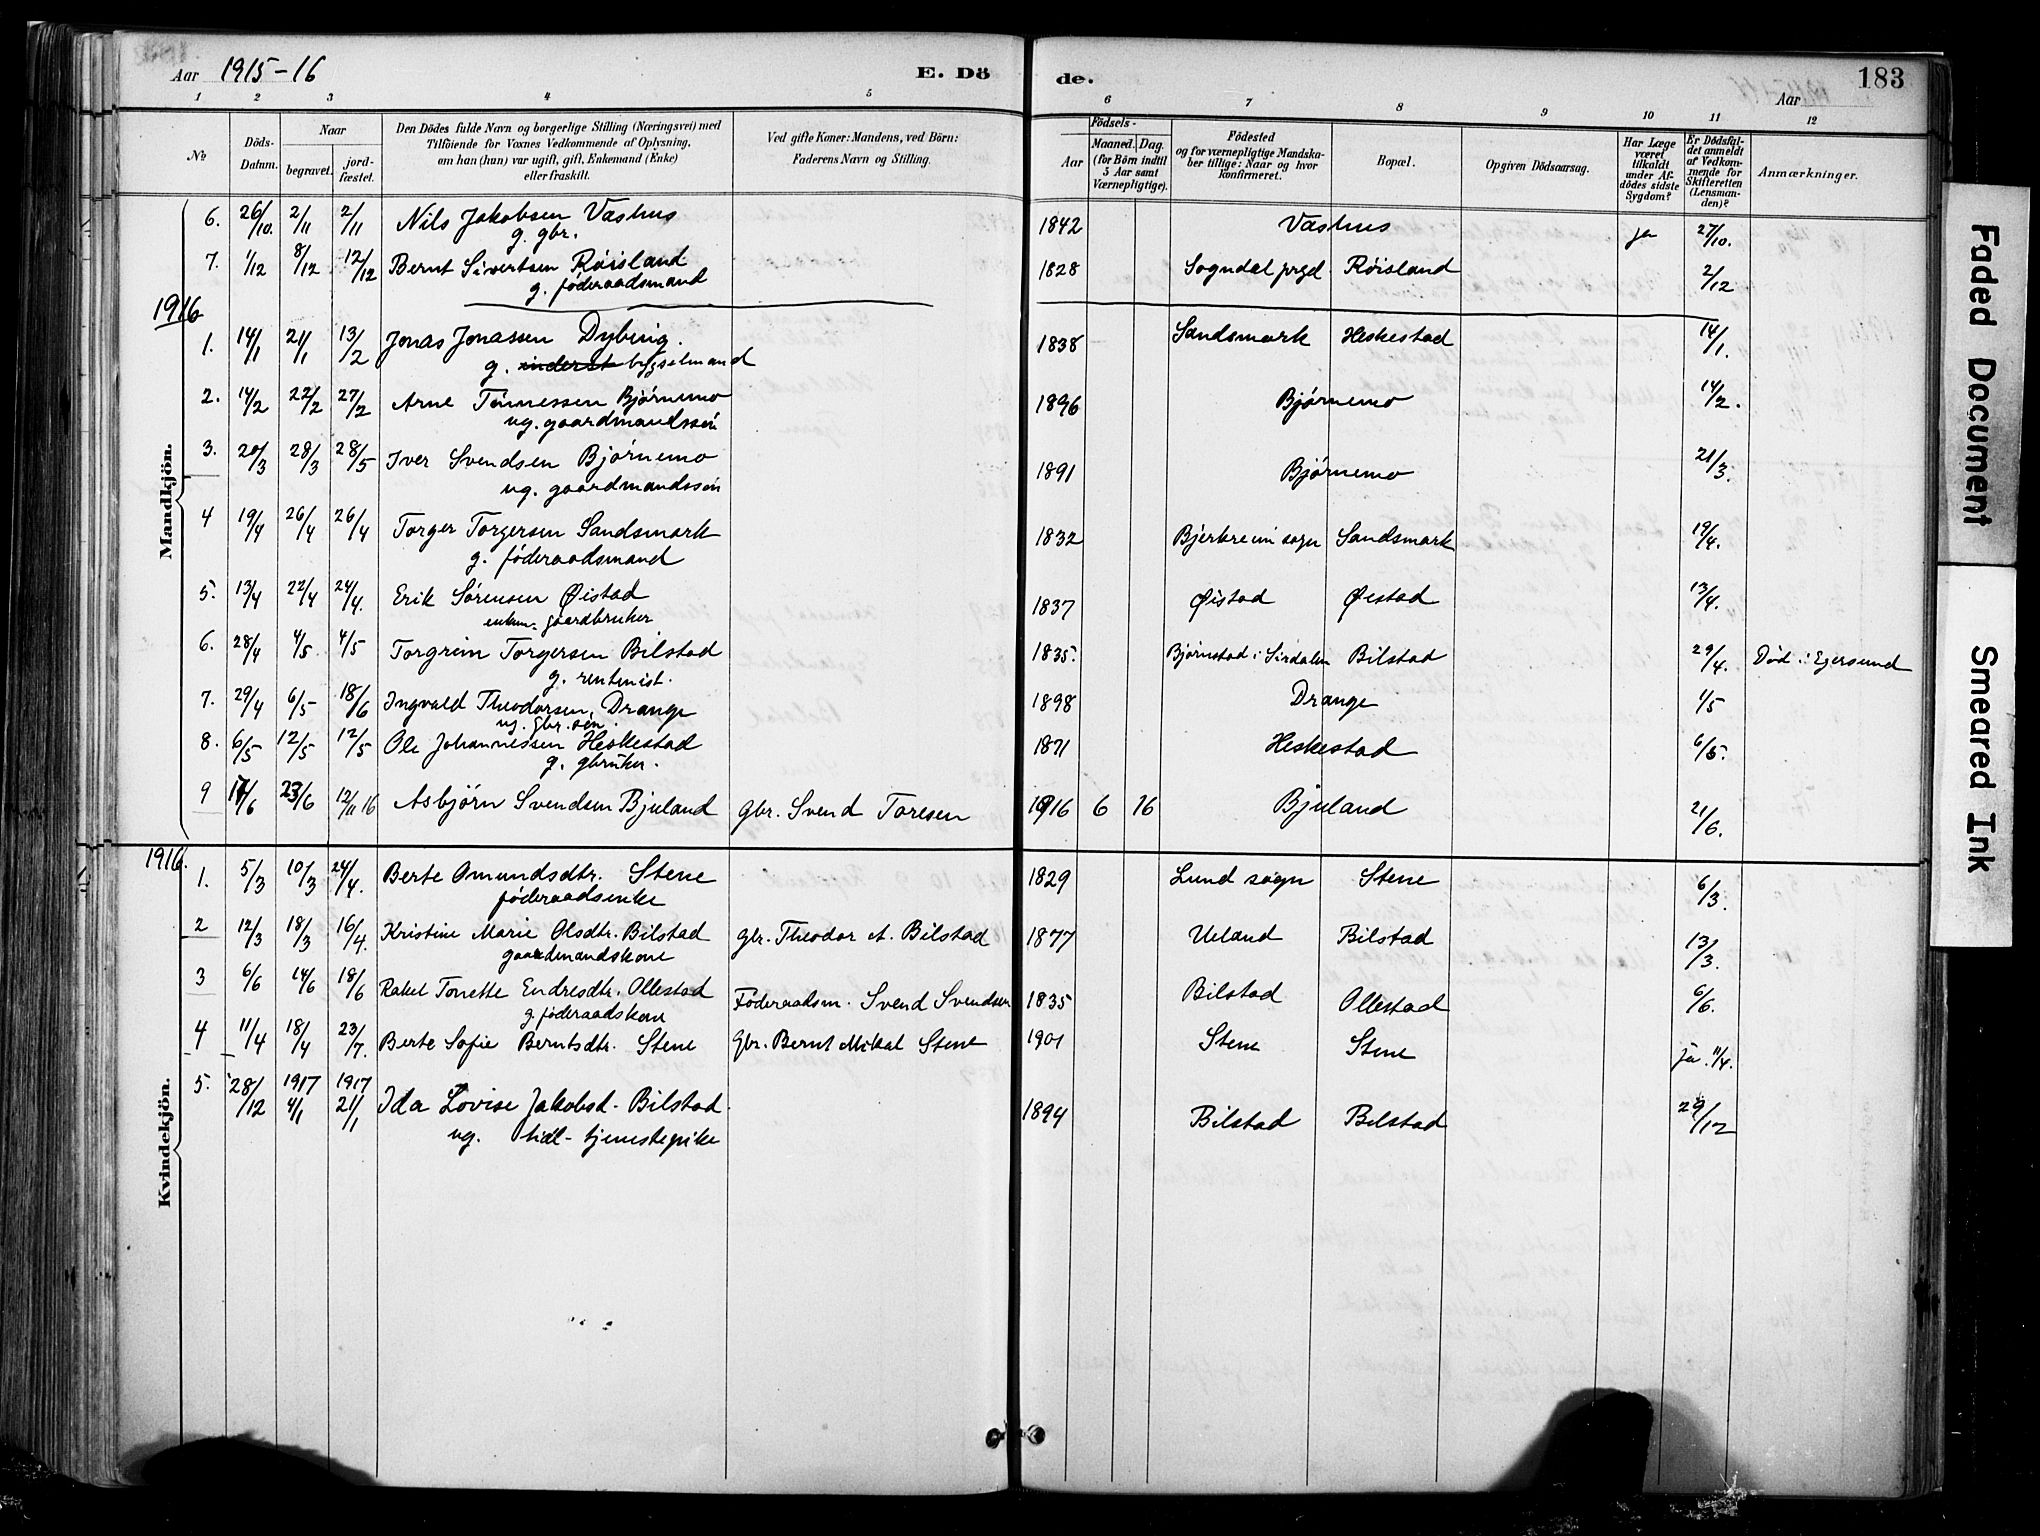 Aar 1915-16 E. Dö de. Aar 183
1 2 3 4 5 6 7 8 9 10 11 12
No
Döds-
Datum.
Naar
begravet.
jord-
fæstet.
Den Dödes fulde Navn og borgerlige Stilling (Næringsvei) med
Tilföiende for Voxnes Vedkommende af Oplysning,
om han (hun) var ugift, gift, Enkemand (Enke)
eller fraskilt.
Ved gifte Koner: Mandens, ved Börn:
Faderens Navn og Stilling.
Födsels-
Aar
Maaned. Dag.
(for Börn indtil
5 Aar samt
Værnepligtige).
Födested
og for værnepligtige Mandska-
ber tillige: Naar og hvor
konfirmeret.
Bopæl.
Opgiven Dödsaarsag.
Har Læge
været
tilkaldt
under Af-
dödes sidste
Sygdom?
Er Dödsfal-
det anmeldt
af Vedkom-
mende for
Skifteretten
(Lensman-
den)?
Anmærkninger.
Mandkjön.
6. 26/10. 2/11 2/11 Nils Jakobsen Vashus 1842 Vashus ja 27/10.
g. gbr.
7. 1/12 8/12 12/12 Bernt Sivertsen Røisland 1828 Sogndal prgd Røisland 2/12
g. föderaadsmand
1916
1. 14/1 21/1 13/2 Jonas Jonassen Dybing. 1838 Sandsmark Heskestad 14/1.
g. inderst bygselmand
2. 14/2 22/2 27/2 Arne Tönnessen Bjørnemo 1896 Bjørnemo 14/2.
ug. gaardmandssön
3. 20/3 28/3 28/5 Iver Svendsen Bjørnemo 1891 Bjørnemo 21/3.
ug. gaardmandssön
4 19/4 26/4 26/4 Torger Torgersen Sandsmark 1832 Bjerkreim sogn Sandsmark 19/4.
g. föderaadsmand
5. 13/4 22/4 24/4. Erik Sørensen Øistad 1837 Øistad Øistad 13/4.
enkem. gaardbruker
6. 28/4 4/5 4/5 Torgrim Torgersen Bilstad 1835. Bjørnestad i Sirdalen Bilstad 29/4. Död i Egersund
g. rentenist.
7. 29/4 6/5 18/6 Ingvald Theodorsen Drange 1898 Drange 1/5
ug. gbr. sön.
8. 6/5 12/5 12/5 Ole Johannessen Heskestad 1871 Heskestad 6/5.
g. gbruker.
9 17/6 23/6 12/11 16 Asbjørn Svendsen Bjuland gbr. Svend Toresen 1916 6 16 Bjuland 21/6.
1916.
Kvindekjön.
1. 5/3 10/3 24/4. Berte Omundsdtr. Stene 1829 Lund sogn Stene 6/3.
föderaadsenke
2 12/3 18/3 16/4. Kristine Marie Olsdtr. Bilstad gbr. Theodor A. Bilstad 1877 Ueland Bilstad 13/3.
gaardmandskone
3 6/6 14/6 18/6 Rakel Tonette Endresdtr. Ollestad Föderaadsm. Svend Svendsen 1835 Bilstad Ollestad 6/6.
g. föderaadskone
4 11/4 18/4 23/7. Berte Sofie Berntsdtr. Stene Gbr. Bernt Mikal Stene 1901 Stene Stene ja. 11/4.
5. 28/12 1917 4/1 1917 21/1 Ida Lovise Jakobsd. Bilstad. 1894 Bilstad Bilstad 29/12
ug. tidl- tjenestepike
Faded Document
Smeared Ink